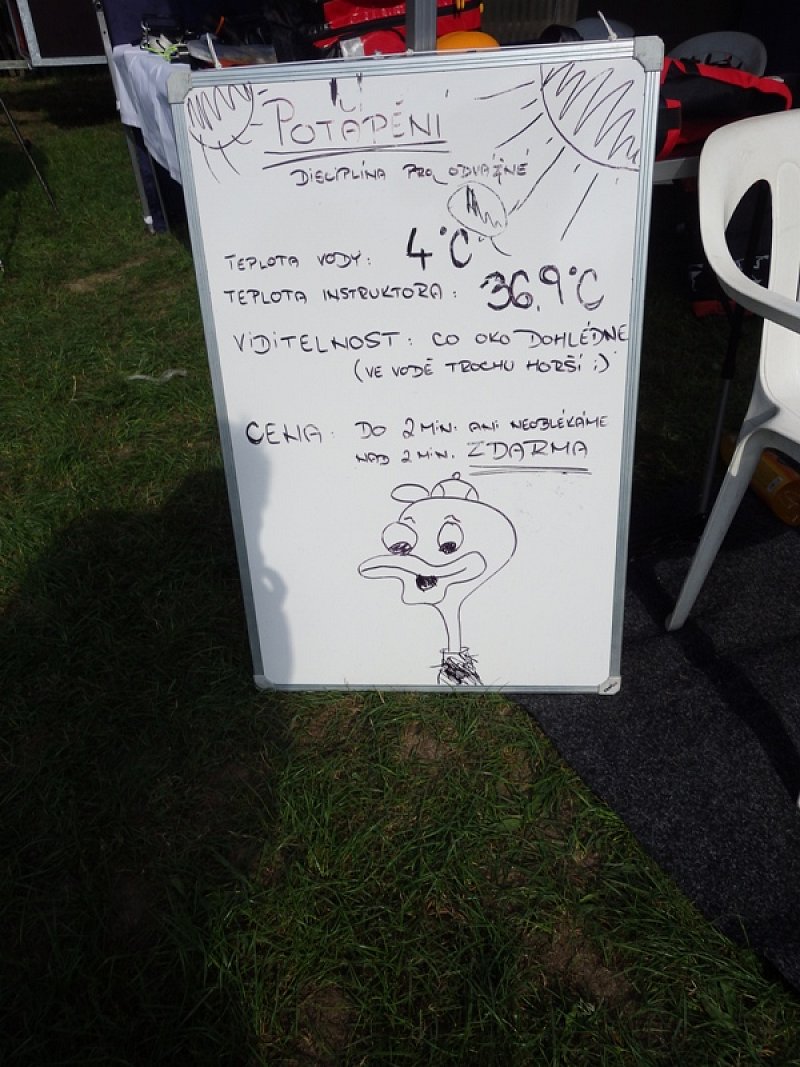 POTAPĚNÍ
DICIPLÍNA PRO ODVÁŽNÉ
TEPLOTA VODY: 4°C
TEPLOTA INSTRUKTORA: 36,9°C
VIDITELNOST: CO OKO DOHLÉDNE
(VE VODĚ TROCHU HORŠÍ ;)
CENA: DO 2 MIN. ANI NEOBLÉKÁME
NAD 2 MIN. ZDARMA